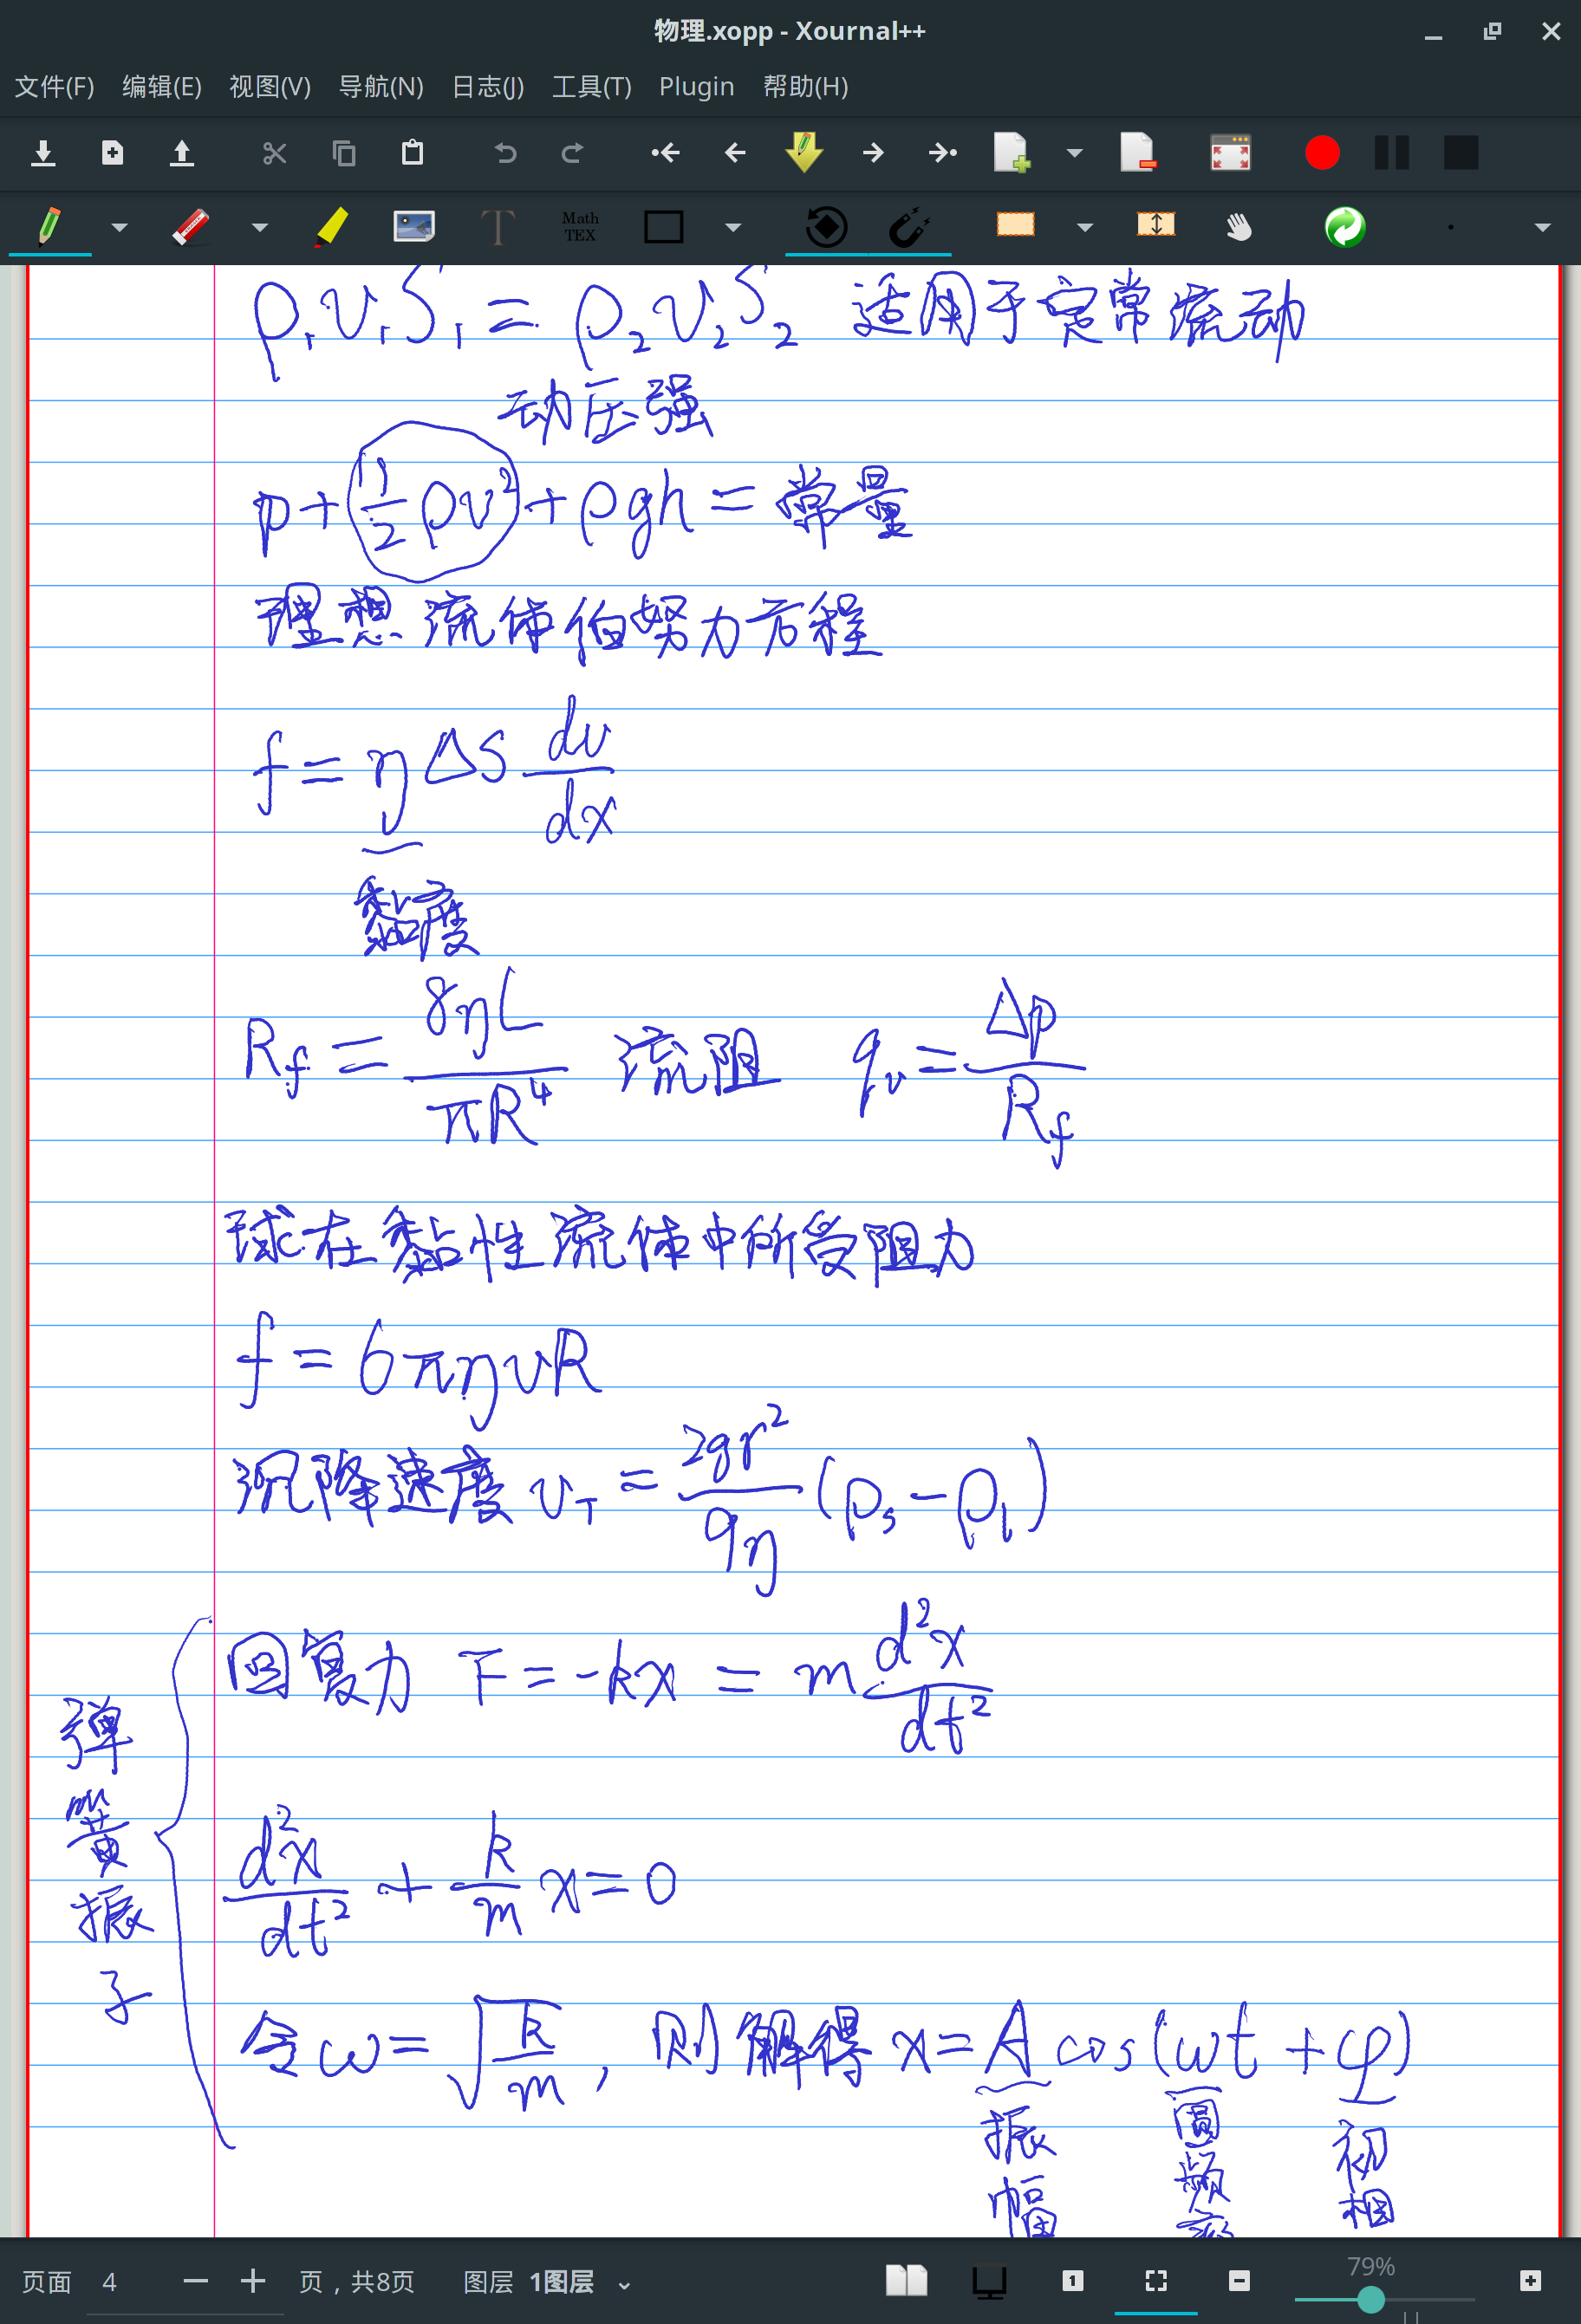 物理.xopp - Xournal++
文件(F) 编辑(E) 视图(V) 导航(N) 日志(J) 工具(T) Plugin 帮助(H)
T Math TEX
ρ₁v₁S₁ = ρ₂v₂S₂ 适用于定常流动
动压强
p + 1/2 ρv² + ρgh = 常量
理想流体伯努力方程
f = η ΔS dv/dx
黏度
R_f = 8ηL/πR⁴ 流阻 q_v = Δp/R_f
球在黏性流体中所受阻力
f = 6πηvR
沉降速度 v_T = 2gr²/9η (ρ_s - ρ_l)
弹簧振子
回复力 F = -kx = m d²x/dt²
d²x/dt² + k/m x = 0
令 ω = √k/m , 则解得 x = A cos(ωt + φ)
振幅 圆频率 初相
页面 4 页，共8页 图层 1图层 1 79%